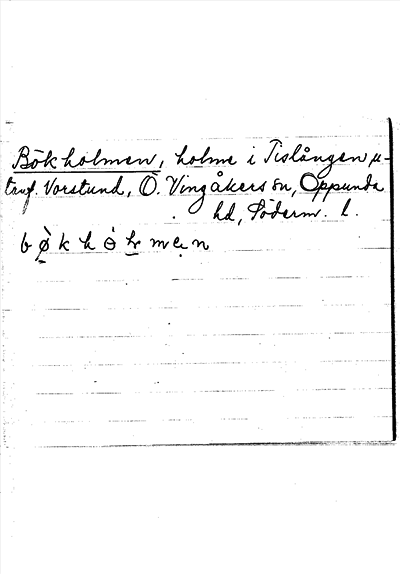 Bökholmen, holme i Tislången u-
tanf. Vorstund, Ö. Vingåkers sn, Oppunda
hd, Söderm. l.